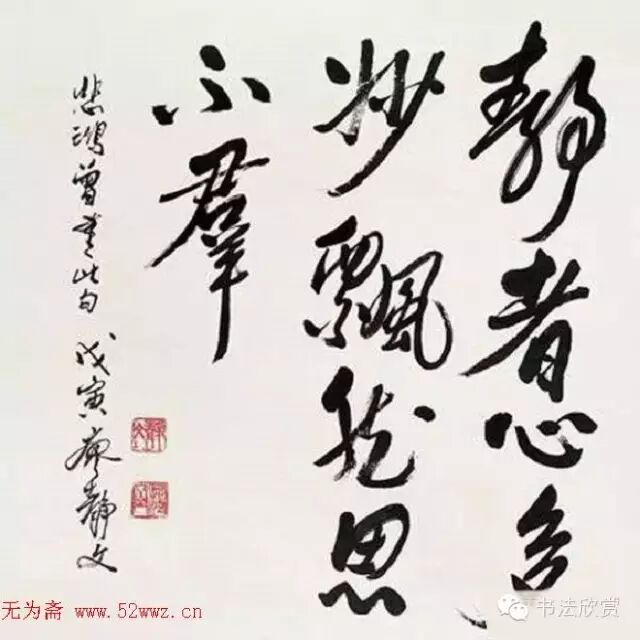 静者心多
妙飘然思
不群
悲鸿曾书此句 戊寅廖静文
无为斋 www.52wwz.cn
书法欣赏